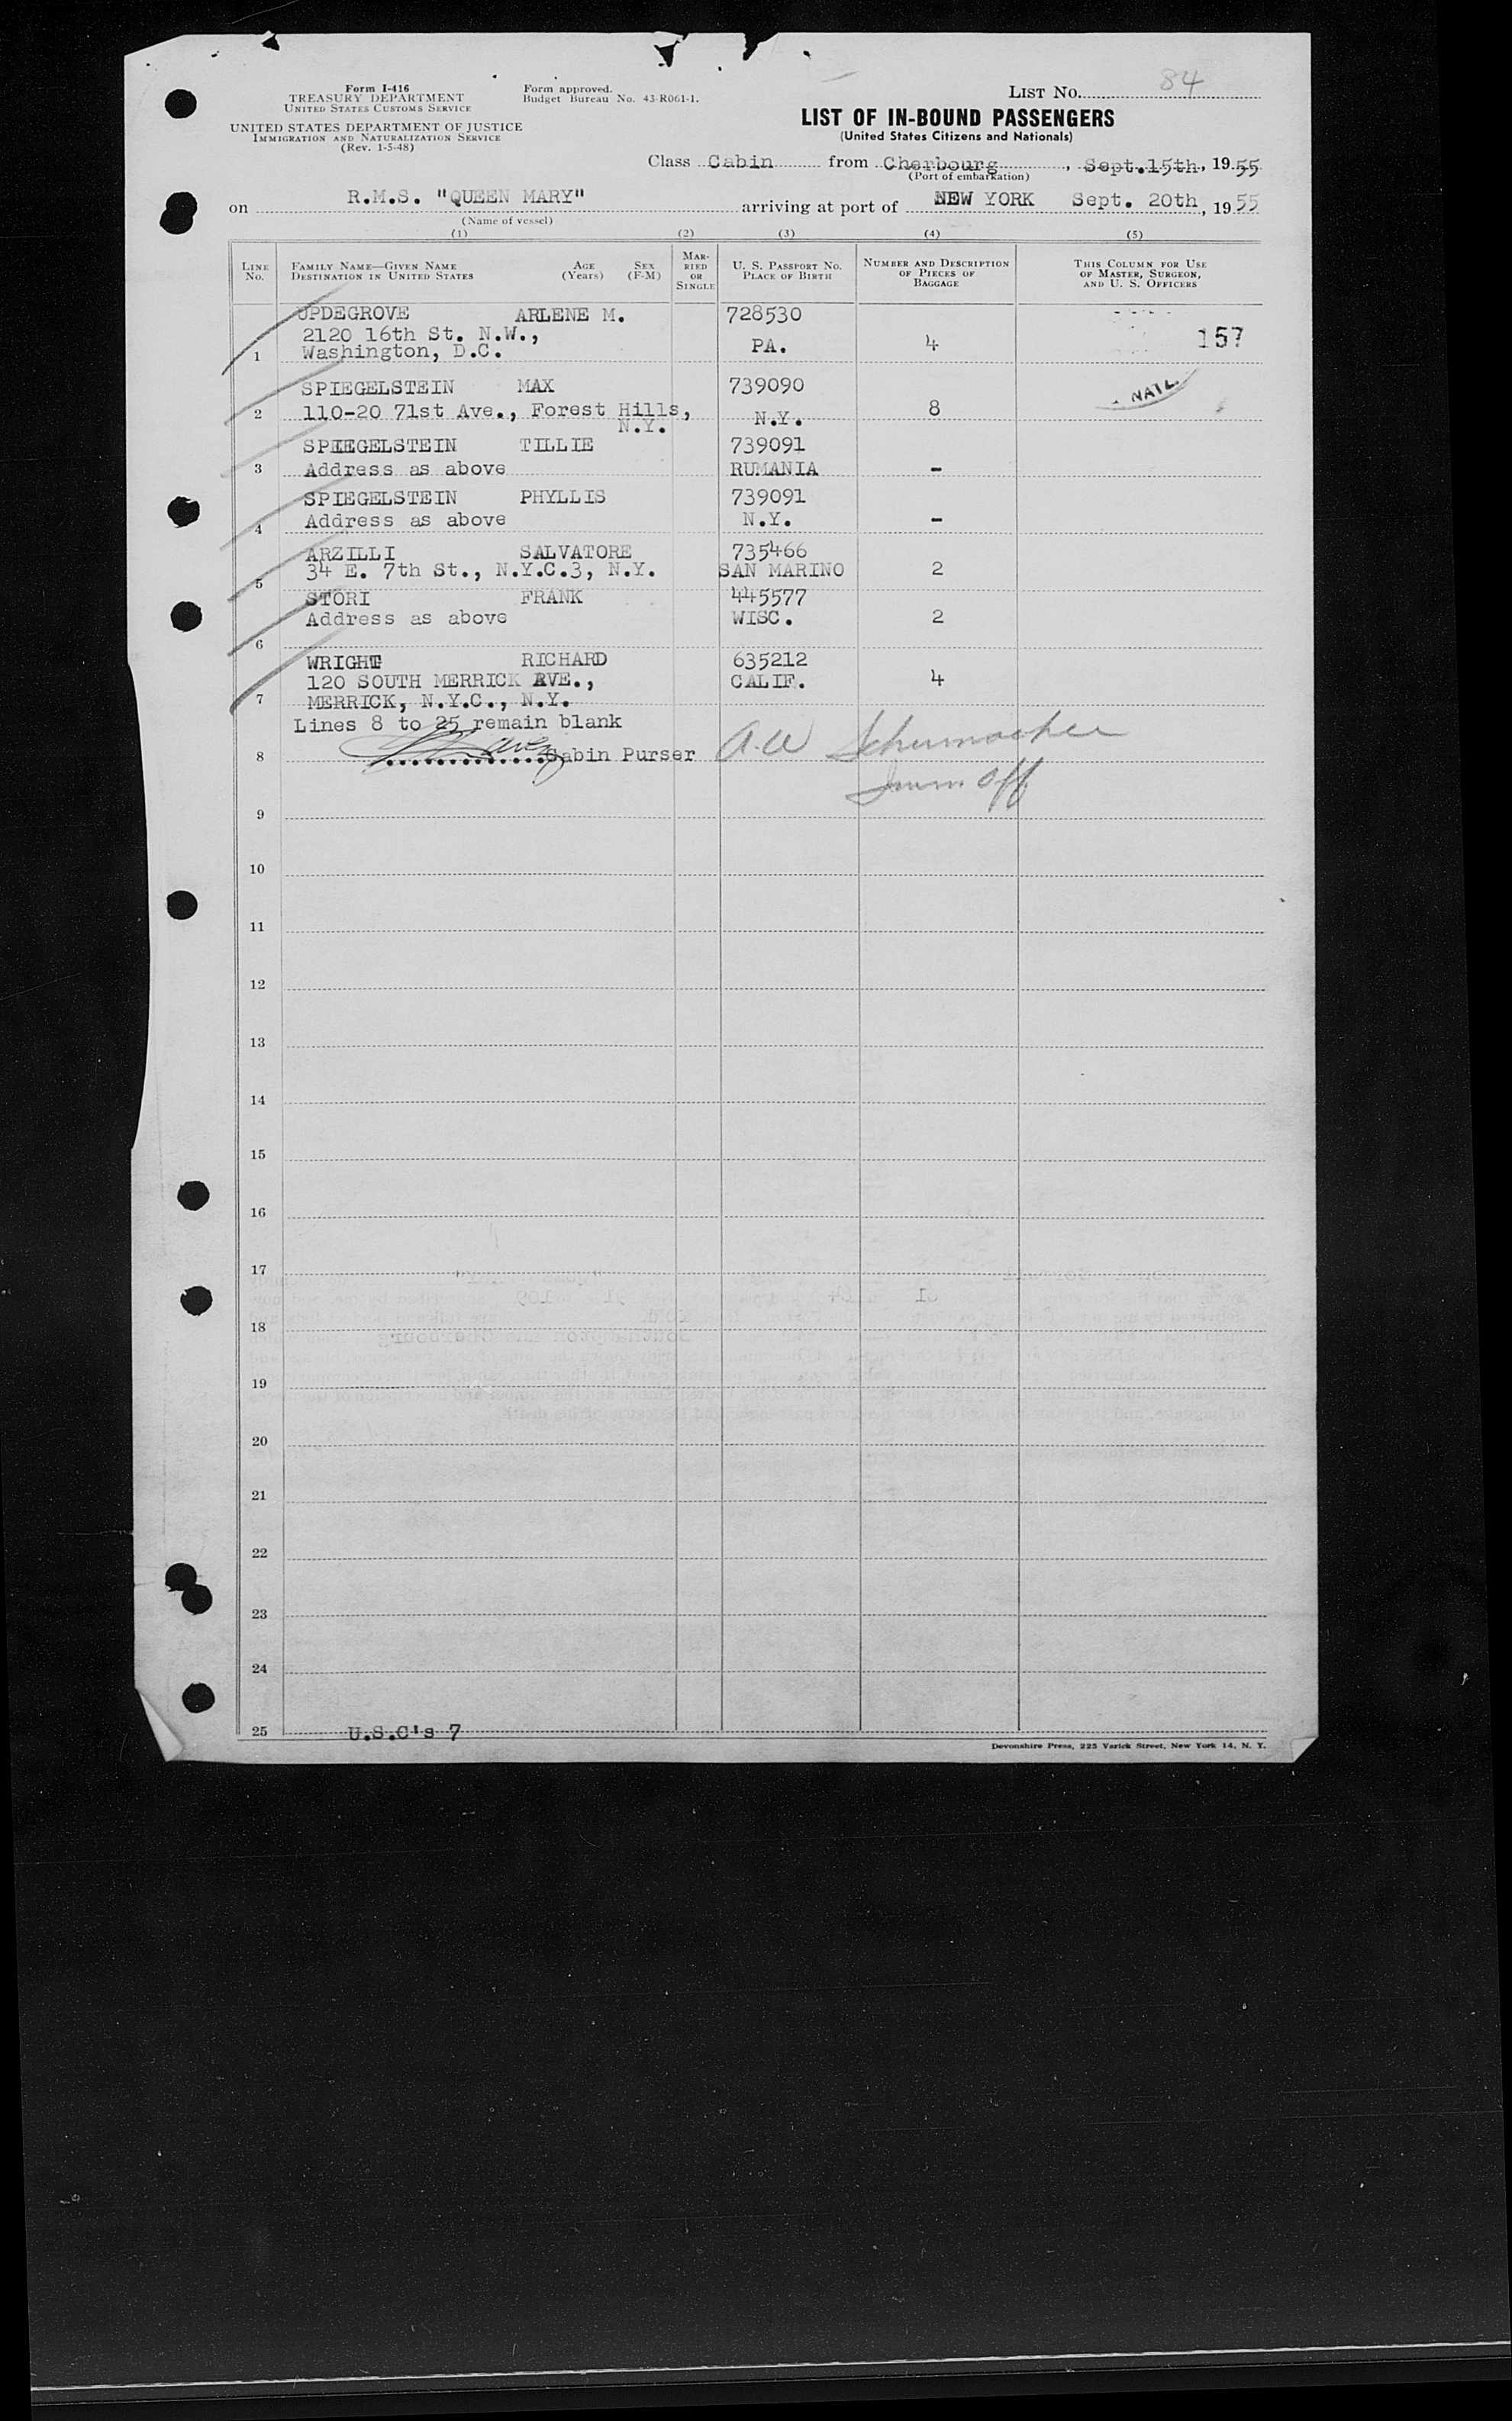 Form I-416
TREASURY DEPARTMENT
UNITED STATES CUSTOMS SERVICE
UNITED STATES DEPARTMENT OF JUSTICE
IMMIGRATION AND NATURALIZATION SERVICE
(Rev. 1-5-48)
Form approved.
Budget Bureau No. 43-R061-1.
LIST NO. 84
LIST OF IN-BOUND PASSENGERS
(United States Citizens and Nationals)
Class Cabin from Cherbourg, Sept.15th, 1955
(Port of embarkation)
on R.M.S. "QUEEN MARY" arriving at port of NEW YORK Sept. 20th, 1955
(Name of vessel)
(1) (2) (3) (4) (5)
LINE No. FAMILY NAME—GIVEN NAME DESTINATION IN UNITED STATES AGE (Years) SEX (F-M) MARRIED OR SINGLE U. S. PASSPORT NO. PLACE OF BIRTH NUMBER AND DESCRIPTION OF PIECES OF BAGGAGE THIS COLUMN FOR USE OF MASTER, SURGEON, AND U. S. OFFICERS
UPDEGROVE ARLENE M. 728530
2120 16th St. N.W., 157
1 Washington, D.C. PA. 4
SPIEGELSTEIN MAX 739090 NATL.
2 110-20 71st Ave., Forest Hills, N.Y. N.Y. 8
SPIEGELSTEIN TILLIE 739091
3 Address as above RUMANIA -
SPIEGELSTEIN PHYLLIS 739091
4 Address as above N.Y. -
ARZILLI SALVATORE 735466
5 34 E. 7th St., N.Y.C.3, N.Y. SAN MARINO 2
STORI FRANK 445577
Address as above WISC. 2
6
WRIGHT RICHARD 635212
120 SOUTH MERRICK AVE., CALIF. 4
7 MERRICK, N.Y.C., N.Y.
Lines 8 to 25 remain blank
8 Cabin Purser A.W Schumacher
Imm Off
9
10
11
12
13
14
15
16
17
18
19
20
21
22
23
24
25 U.S.C's 7
Devonshire Press, 225 Varick Street, New York 14, N. Y.